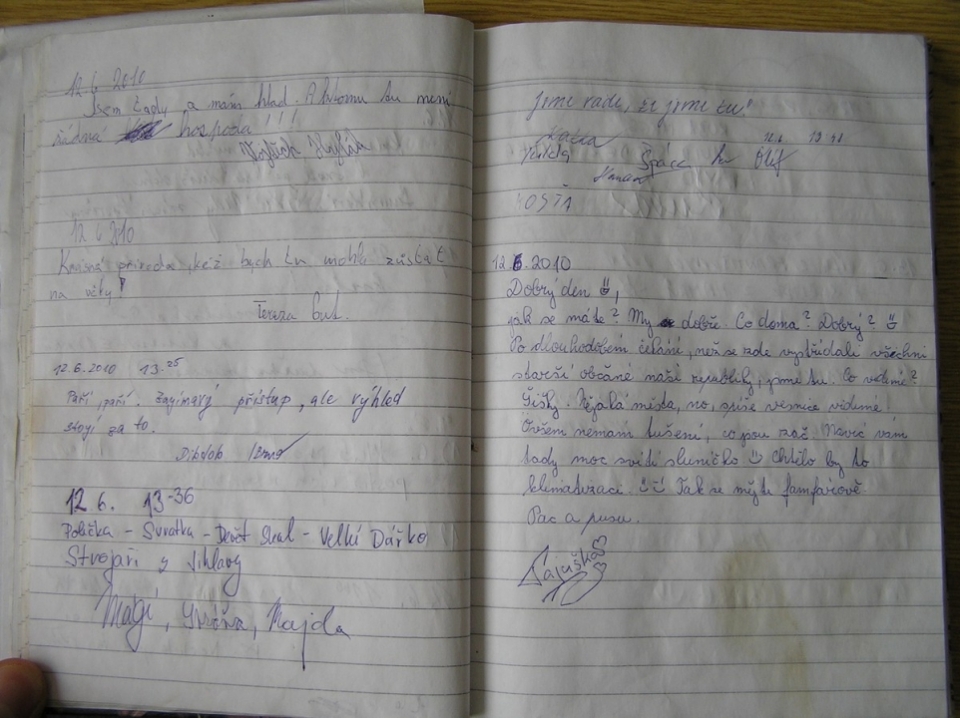 12 6 2010
Jsem tady a mám hlad. A k tomu tu není
žádná hospoda!!!
12 6 2010
Krásná příroda, kéž bych tu mohla zůstat
na věky!
Tereza
12.6.2010 13.25
Paří, paří. Zajímavý přístup, ale výhled
stojí za to.
12.6. 13-36
Polička - Svratka - Devět Skal - Velké Dářko
Strojaři z Jihlavy
Magi, Majda
jsme rádi, že jsme tu!
Katka
Špáca
KOŠŤA
12 6.2010
Dobrý den
jak se máte? My dobře. Co doma? Dobrý?
Po dlouhodobém čekání, než se zde vystřídali všichni
starší občané naší republiky, jsme tu. Co vidíme?
Šišky. Nějaká města, no, spíše vesnice vidíme!
Ovšem nemám tušení, co jsou zač. Navíc vám
tady moc svítí sluníčko Chtělo by to
klimatizaci. Tak se mějte famfárově.
Pac a pusu.
Tájuška